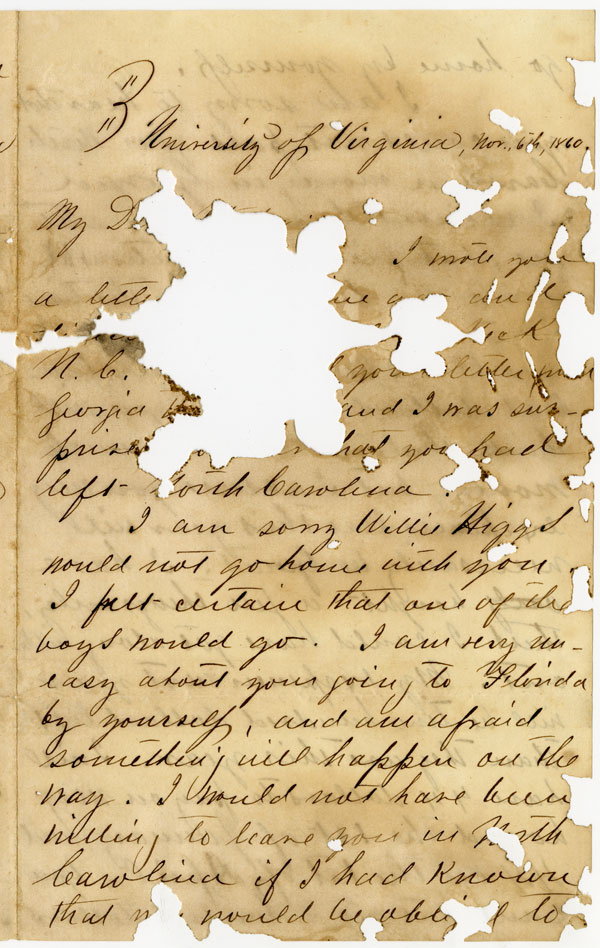 "3"
University of Virginia, Nov. 6th, 1860.
My
I wrote you
a and
N. C. your letter
Georgia and I was sur-
that you had
left North Carolina.
I am sorry Willie Higgs
would not go home with you.
I felt certain that one of the
boys would go. I am very un-
easy about your going to Florida
by yourself, and am afraid
something will happen on the
way. I would not have been
willing to leave you in North
Carolina if I had known
that would be to